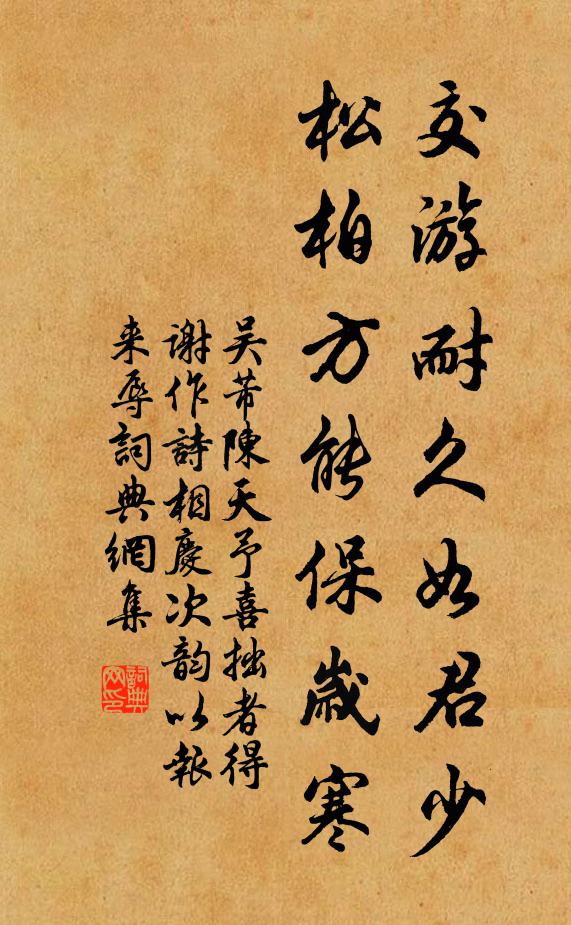 交游耐久如君少
松柏方能保歲寒
吴芾陳天予喜拙者得
謝作詩相慶次韵以報
来辱詞典網集
詞典
网印